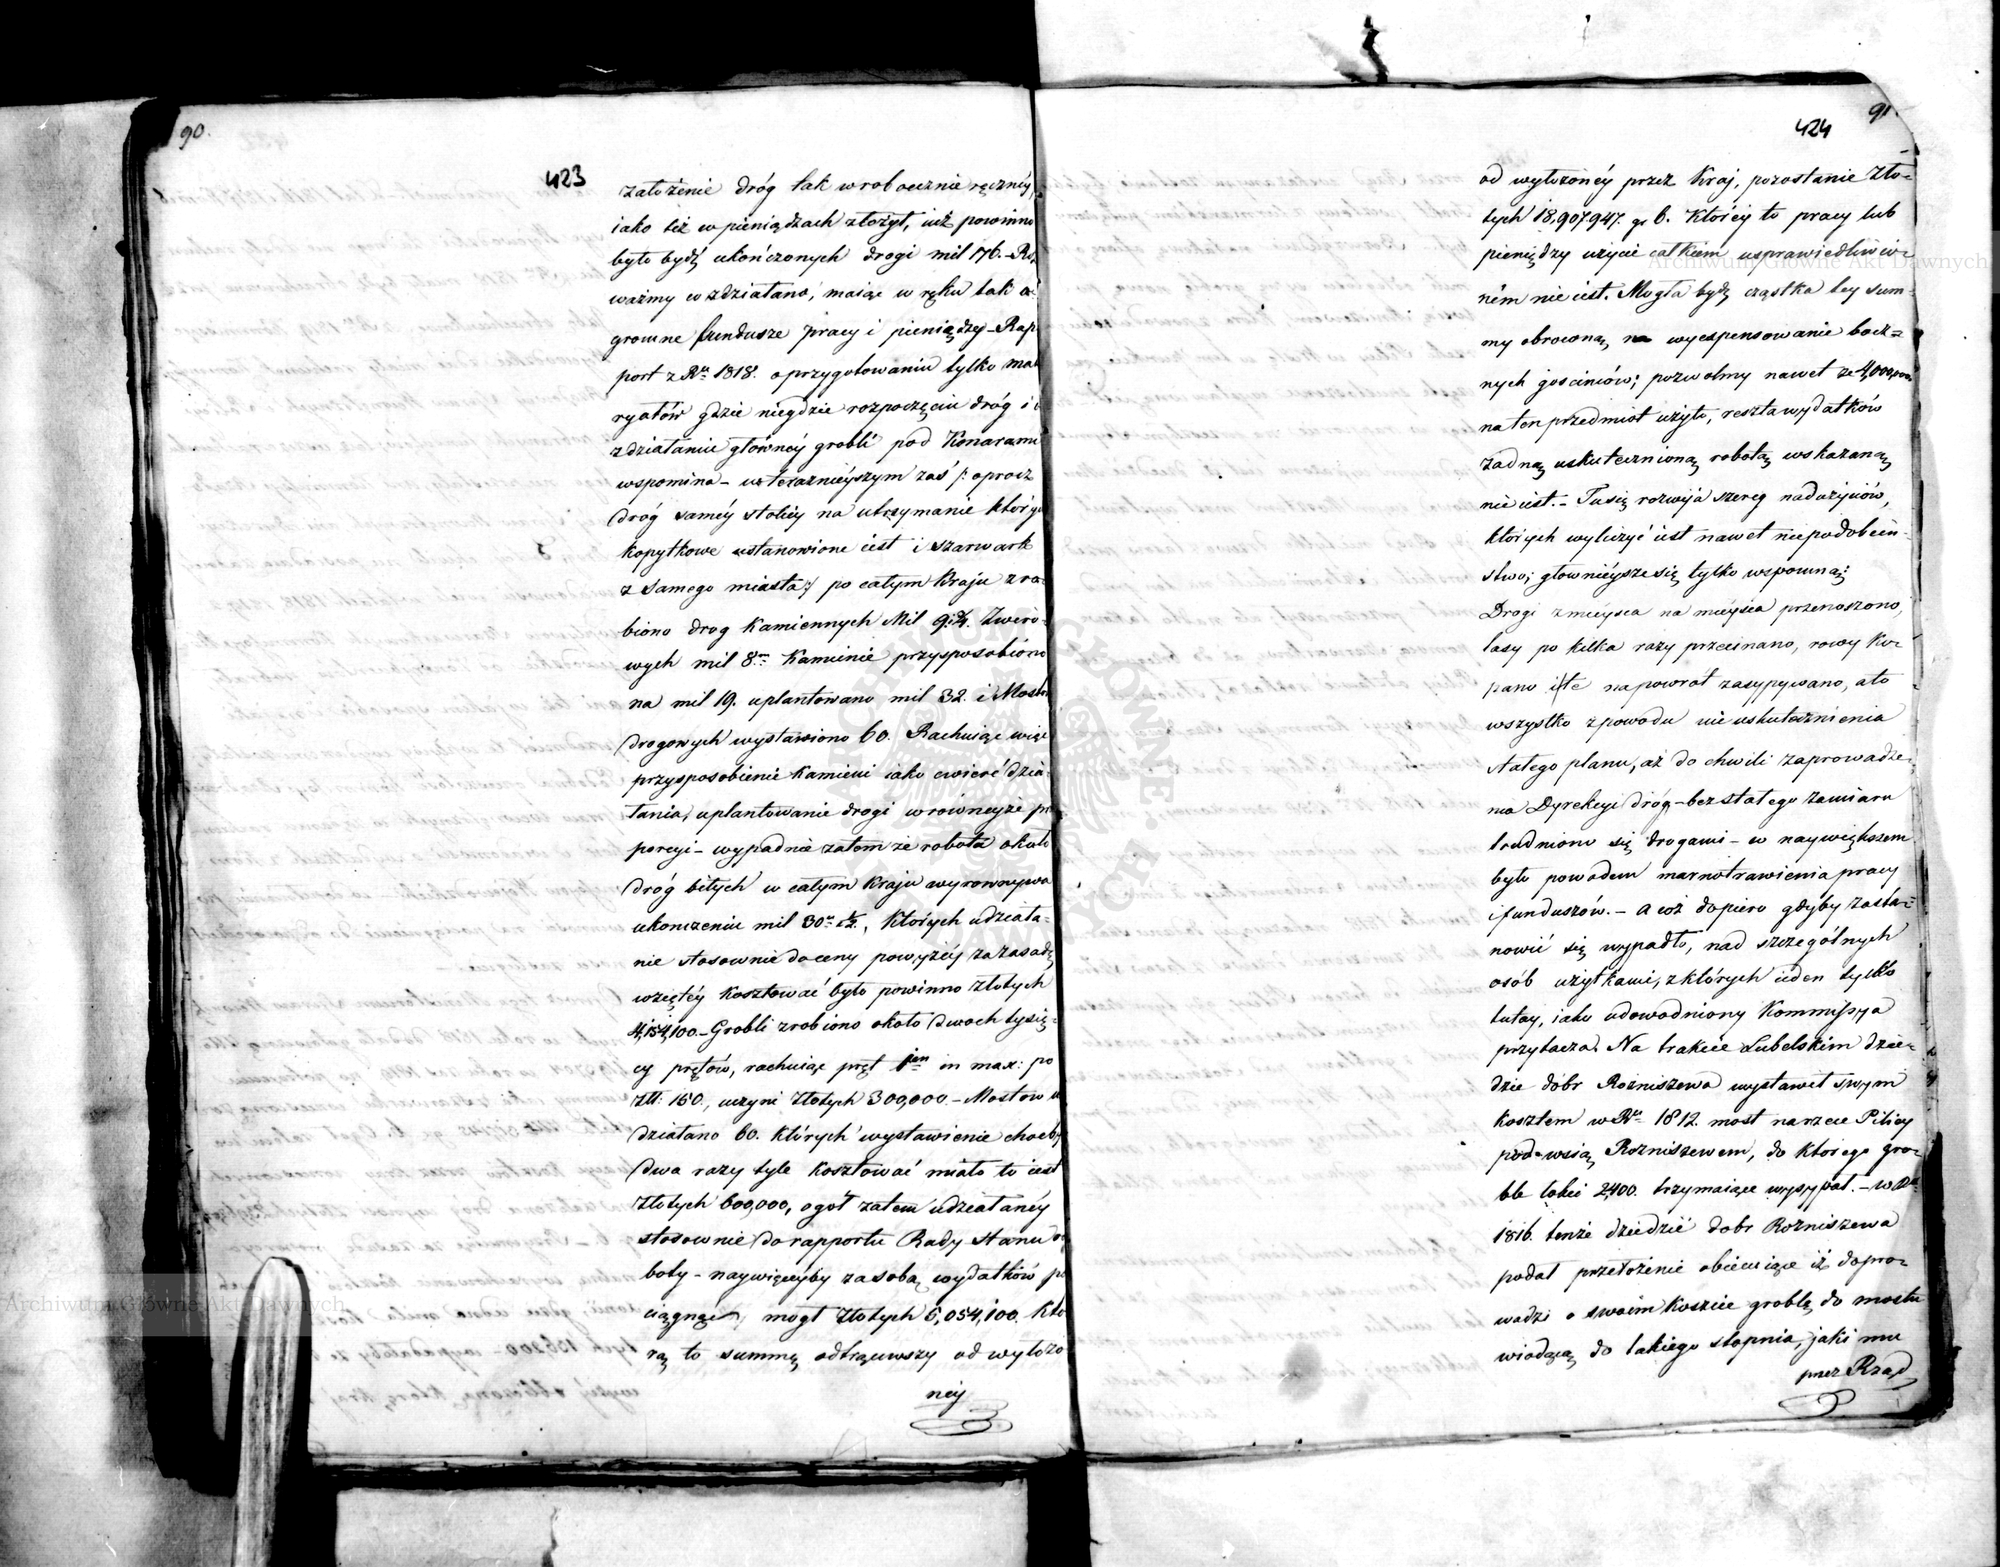 90.
423
założenie dróg tak w robociznie ręcznéy,
iako też w pieniądzach złożył, iuż powinno
było bydź ukończonych drogi mil 176. - Roz
ważmy co zdziałano, maiąc w ręku tak o-
gromne fundusze pracy i pieniędzy - Rap
port z Ru 1818. o przygotowaniu tylko mat
ryałów gdzie niegdzie rozpoczęciu dróg i
zdziałaniu głównéy grobli pod Konarami
wspomina - w teraznieyszym zaś /: oprocz
dróg saméy stolicy na utrzymanie których
kopytkowe ustanowione iest i szarwark
z samego miasta :/ po całym Kraju zro-
biono drog Kamiennych Mil 9 3/4. Zwiro-
wych mil 8m Kamienie przysposobiono
na mil 19. uplantowano mil 32. i Mostów
drogowych wystawiono 60. Rachuiąc więc
przysposobienie Kamieni iako ćwierć dzia-
łania, uplantowanie drogi w równeyże pro
porcyi - wypadnie zatem że robota około
dróg bitych w całym Kraju wyrownywa
ukonczeniu mil 30u 1/2., których udziała-
nie stosownie do ceny powyżéy za zasadę
wziętéy Kosztować było powinno złotych
4,154,100. - Grobli zrobiono około dwoch tysię-
cy prętów, rachuiąc pręt jeden in max: po
Złł: 150., uczyni złotych 300,000. - Mostow u
działano 60. których wystawienie choćby
dwa razy tyle kosztować miało to iest
złotych 600,000, ogół zatem udziałanéy
stosownie do rapportu Rady Stanu ro
boty - naywięcéyby za sobą wydatków po
ciągnąć mogł złotych 5,054,100. Któ
rą to summę odtrąciwszy od wyłożo
néy
91.
424
od wyłożonéy przez Kraj, pozostanie Zło-
tych 18,907,947. gr 6. Któréy to pracy lub
pieniędzy użycie całkiem usprawiedliwio-
ném nie iest. Mogła bydź cząstka tey sum-
my obrocona, na wyexpensowanie bocz-
nych gościńców; pozwolmy nawet że 4,000,000
na ten przedmiot użyto, reszta wydatków
żadną uskutecznioną robotą wskazaną
nie iest. - Tu się rozwija szereg nadużyciów,
których wyliczyć iest nawet niepodobień-
stwo; głownieysze się tylko wspomną:
Drogi z mieysca na mieysca przenoszono,
lasy po kilka razy przecinano, rowy ko-
pano i te napowrot zasypywano, a to
wszystko z powodu nieuskutecznienia
stałego planu, aż do chwili zaprowadze-
nia Dyrekcyi dróg - bez stałego zamiaru
trudniono się drogami - co naywiększem
było powodem marnotrawienia pracy
i funduszów. - A coż dopiero gdyby zasta-
nowić się wypadło, nad szczególnych
osób użytkami, z których ieden tylko
tutay, iako udowodniony Kommissya
przytacza. Na trakcie Lubelskim dzie-
dzic dóbr Rozniszewa wystawił swym
kosztem w Ru 1812. most na rzece Pilicy
pod wsią Rozniszewem, do ktorego gro-
blę łokci 2,400. trzymaiącą wysypał. - w Ru
1816. tenże dziedzic dobr Rozniszewa
podał przełożenie obiecuiąc iż dopro-
wadzi o swoim koszcie groblę do mostu
wiodącą do takiego stopnia, jaki mu
przez Rząd
Archiwum Główne Akt Dawnych
Archiwum Główne Akt Dawnych